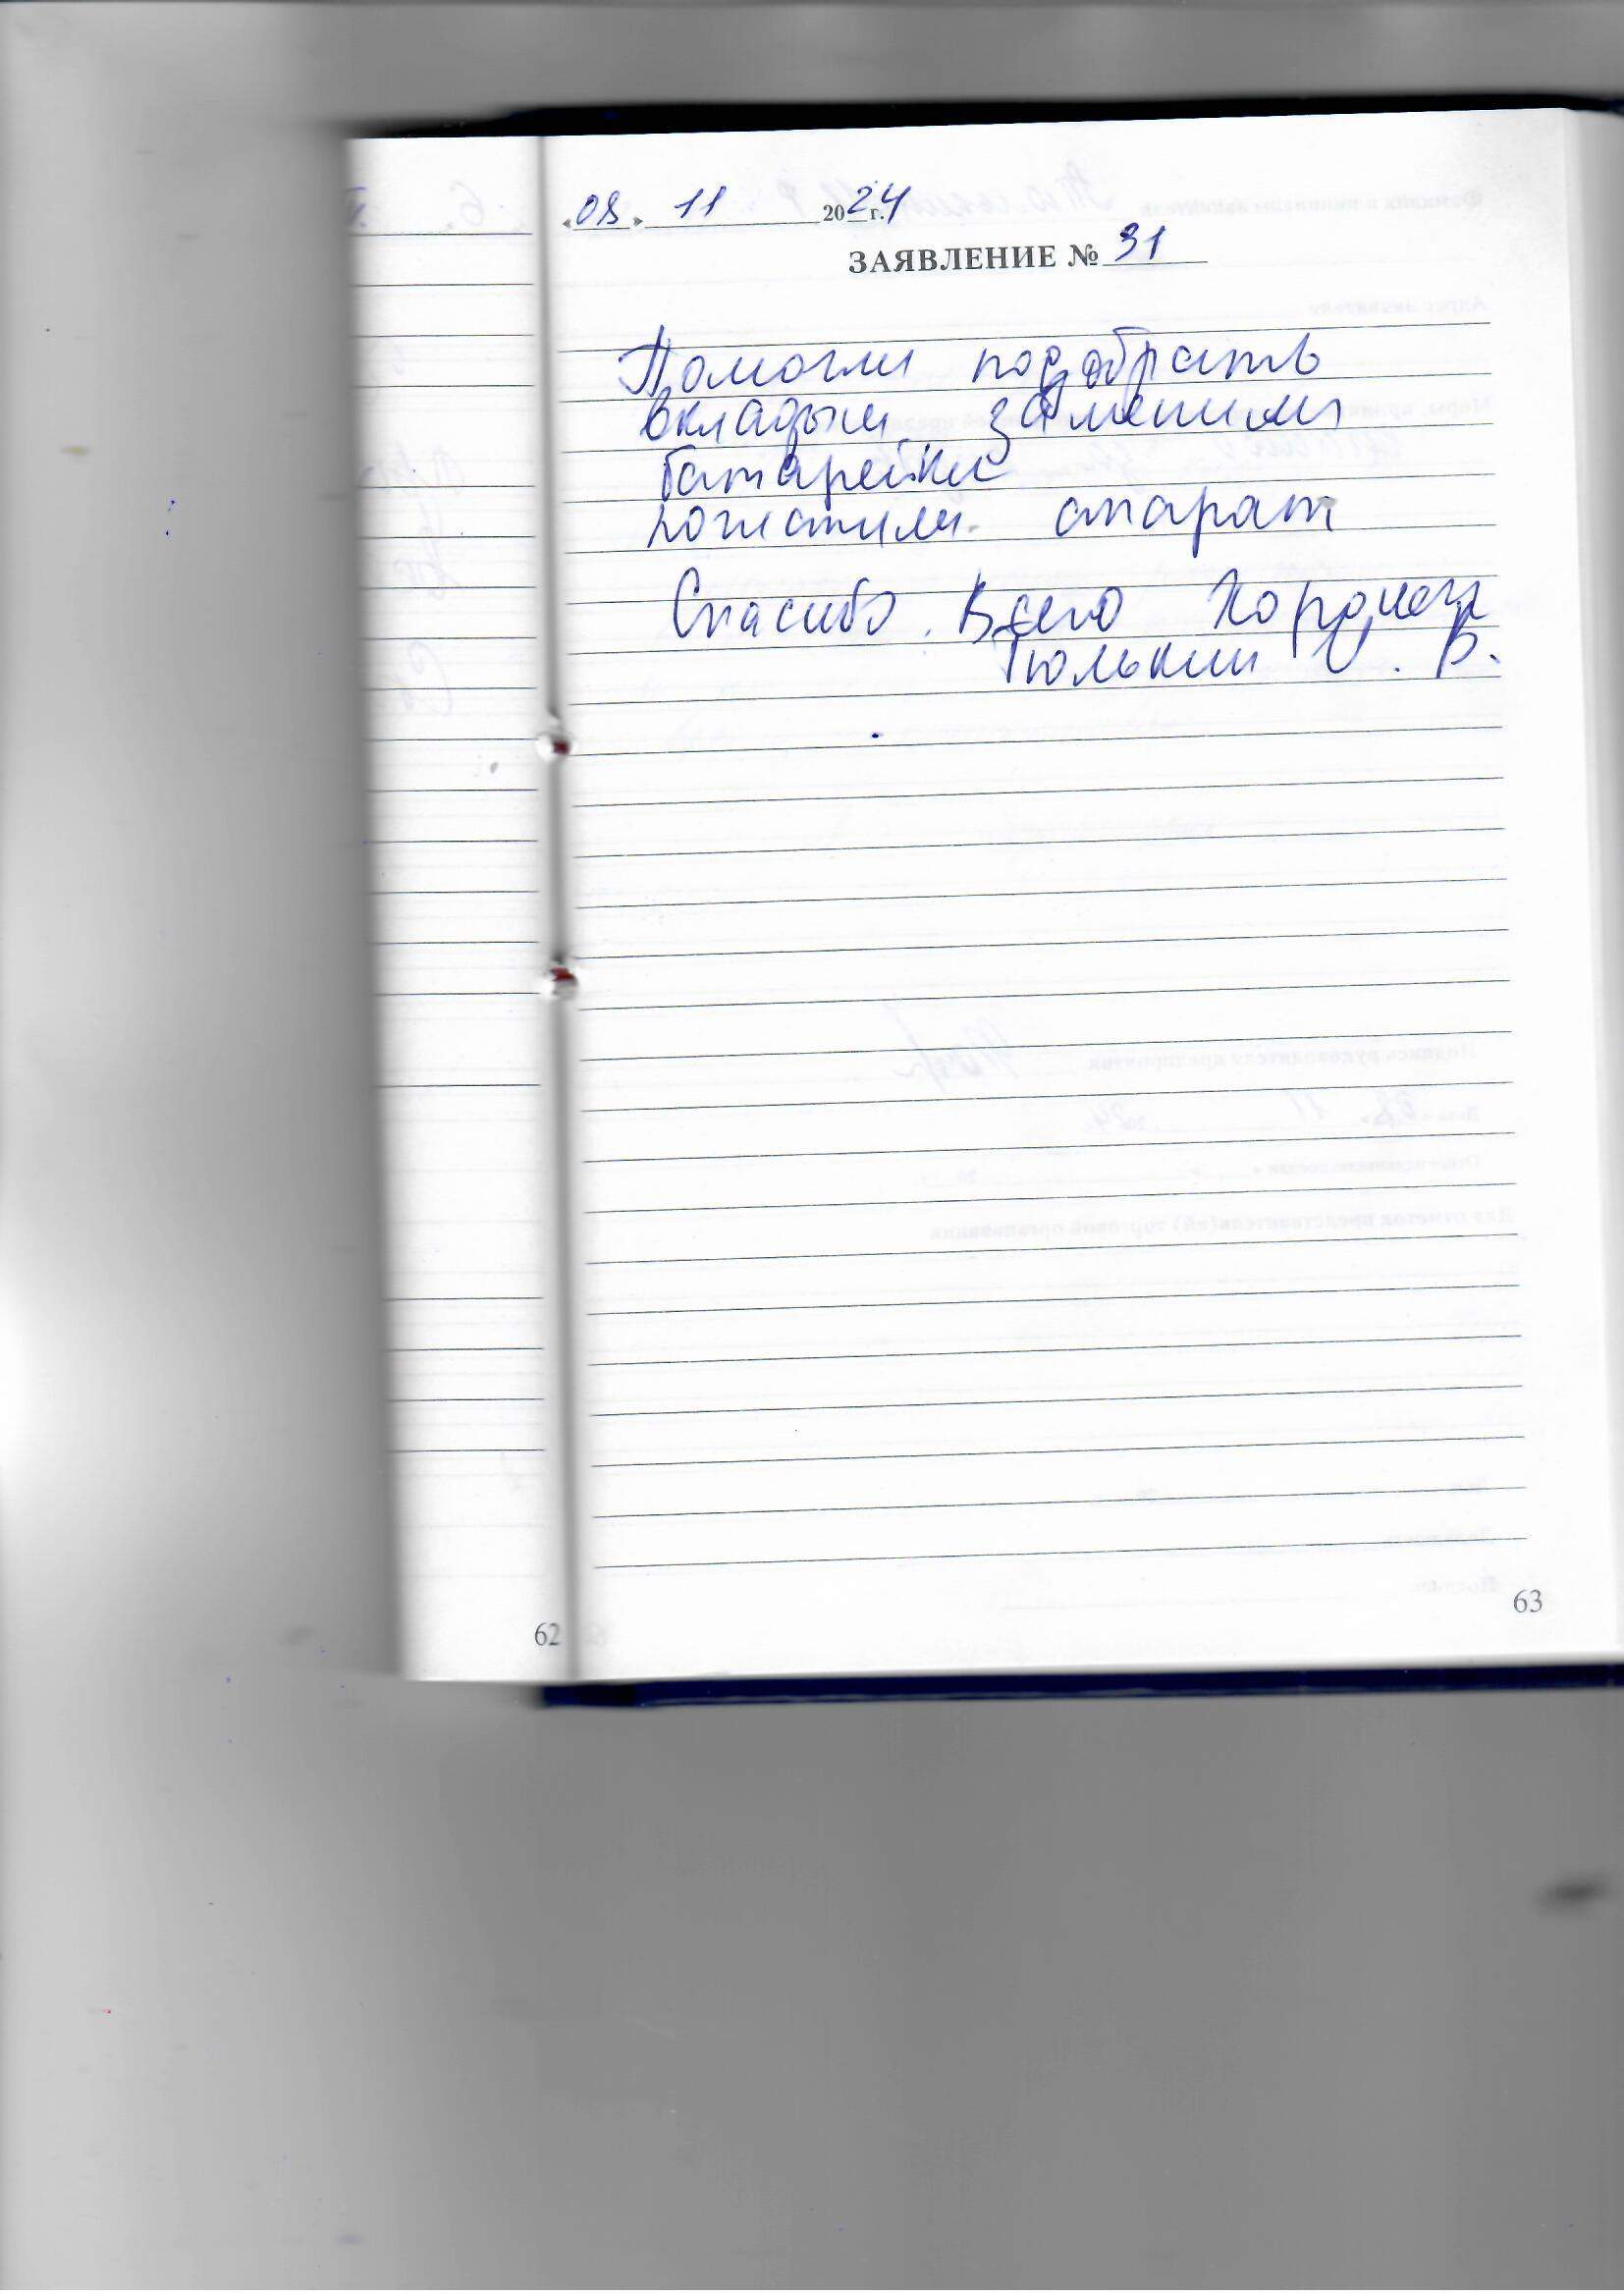 «08» 11 2024 г.
ЗАЯВЛЕНИЕ № 31
Помогли подобрать
вкладыш заменили
батарейки
почистили апарат
Спасибо. Всего Хорошего
Тюлькин И. В.
62
63